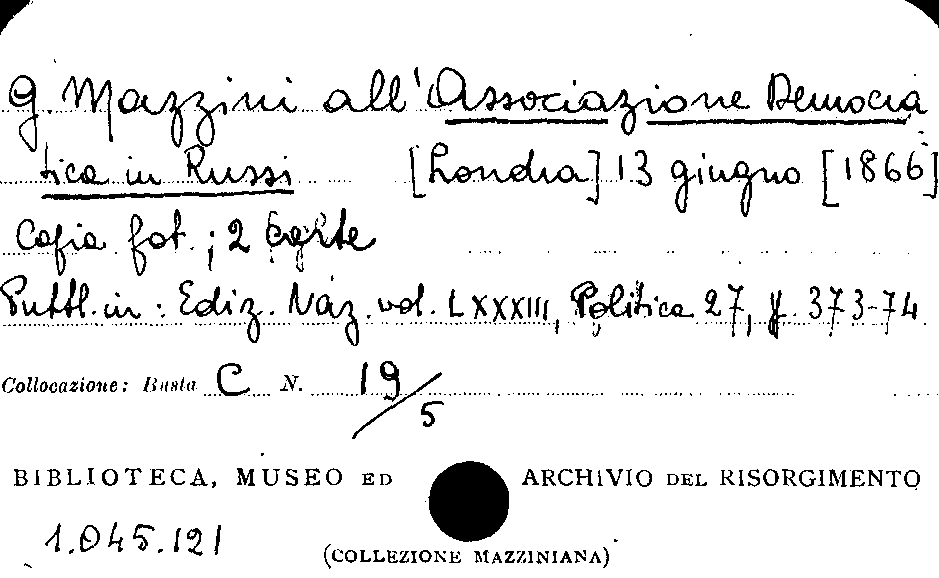 G. Mazzini all'Associazione Democra
tica in Russi [Londra] 13 giugno [1866]
Copia fot.; 2 carte
Pubbl. in: Ediz. Naz. vol. LXXXIII, Politica 27, p. 373-74
Collocazione: Busta C N. 19/5
BIBLIOTECA, MUSEO ED ARCHIVIO DEL RISORGIMENTO
1.045.121
(COLLEZIONE MAZZINIANA)